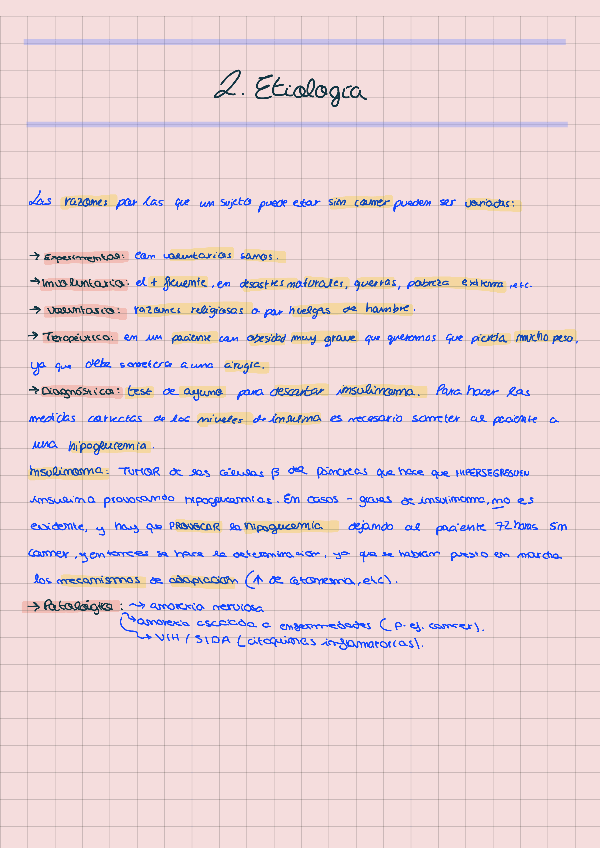 2. Etiología
Las razones por las que un sujeto puede estar sin comer pueden ser variadas:
→ Experimentos: con voluntarios sanos.
→ Involuntaria: el + frecuente, en desastres naturales, guerras, pobreza extrema, etc.
→ Voluntaria: razones religiosas o por huelgas de hambre.
→ Terapéutica: en un paciente con obesidad muy grave que queremos que pierda mucho peso,
ya que debe someterse a una cirugía.
→ Diagnóstica: test de ayuno para descartar insulinoma. Para hacer las
medidas correctas de los niveles de insulina es necesario someter al paciente a
una hipoglucemia.
Insulinoma: TUMOR de las células β del páncreas que hace que HIPERSEGREGUEN
insulina provocando hipoglucemias. En casos - graves de insulinoma, no es
evidente, y hay que PROVOCAR la hipoglucemia dejando al paciente 72 horas sin
comer, y entonces se hace la determinación, ya que se habrán puesto en marcha
los mecanismos de adaptación (↑ de cetonemia, etc).
→ Patológica: → anorexia nerviosa
→ anorexia asociada a enfermedades (p. ej. cáncer).
→ VIH / SIDA (citoquinas inflamatorias).